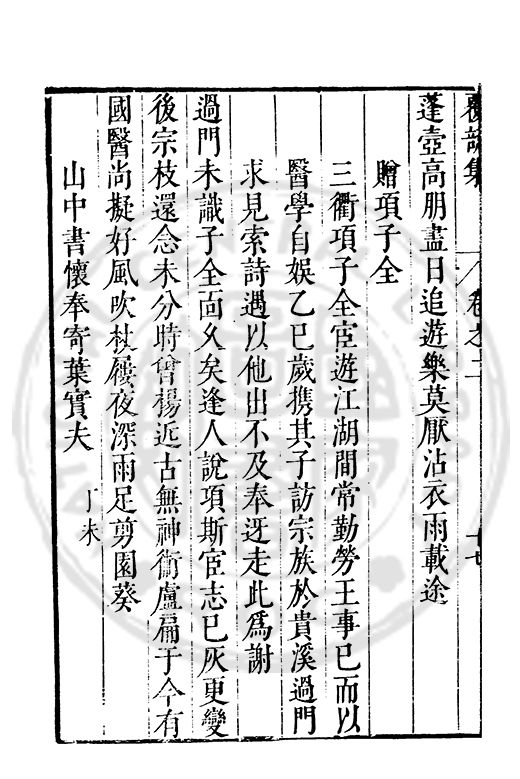 覆瓿集 卷之二 十七
蓬壺高朋盡日追遊樂莫厭沾衣雨載途
贈項子全
三衢項子全宦遊江湖間常勤勞王事已而以
醫學自娛乙巳歲携其子訪宗族於貴溪過門
求見索詩遇以他出不及奉迓走此爲謝
過門未識子全面久矣逢人說項斯宦志已灰更變
後宗枝還念未分時曾楊近古無神術盧扁于今有
國醫尚擬好風吹杖屨夜深雨足剪園葵
山中書懷奉寄葉實夫 丁未